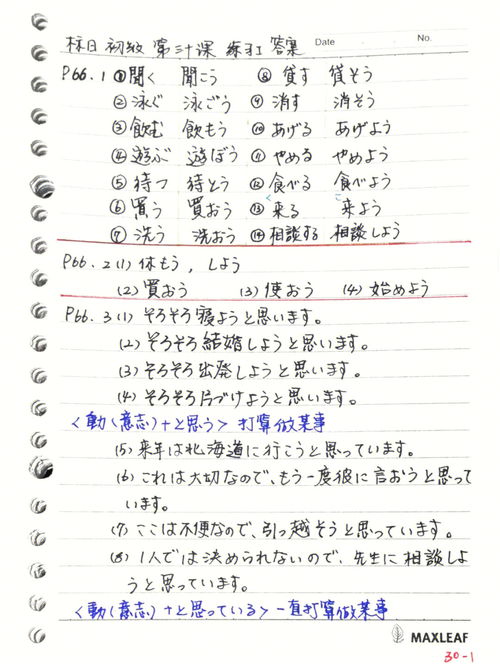 标日初级 第三十课 练习I 答案 Date No.
P66.1 ①聞く 聞こう ⑧貸す 貸そう
②泳ぐ 泳ごう ⑨消す 消そう
③飲む 飲もう ⑩あげる あげよう
④遊ぶ 遊ぼう ⑪やめる やめよう
⑤待つ 待とう ⑫食べる 食べよう
⑥買う 買おう ⑬来る 来よう
⑦洗う 洗おう ⑭相談する 相談しよう
P66.2 (1) 休もう，しよう
(2) 買おう (3) 使おう (4) 始めよう
P66.3 (1) そろそろ寝ようと思います。
(2) そろそろ結婚しようと思います。
(3) そろそろ出発しようと思います。
(4) そろそろ片づけようと思います。
<動(意志)+と思う> 打算做某事
(5) 来年は北海道に行こうと思っています。
(6) これは大切なので、もう一度彼に言おうと思って
います。
(7) ここは不便なので、引っ越そうと思っています。
(8) 1人では決められないので、先生に相談しよ
うと思っています。
<動(意志)+と思っている> 一直打算做某事
MAXLEAF
30-1